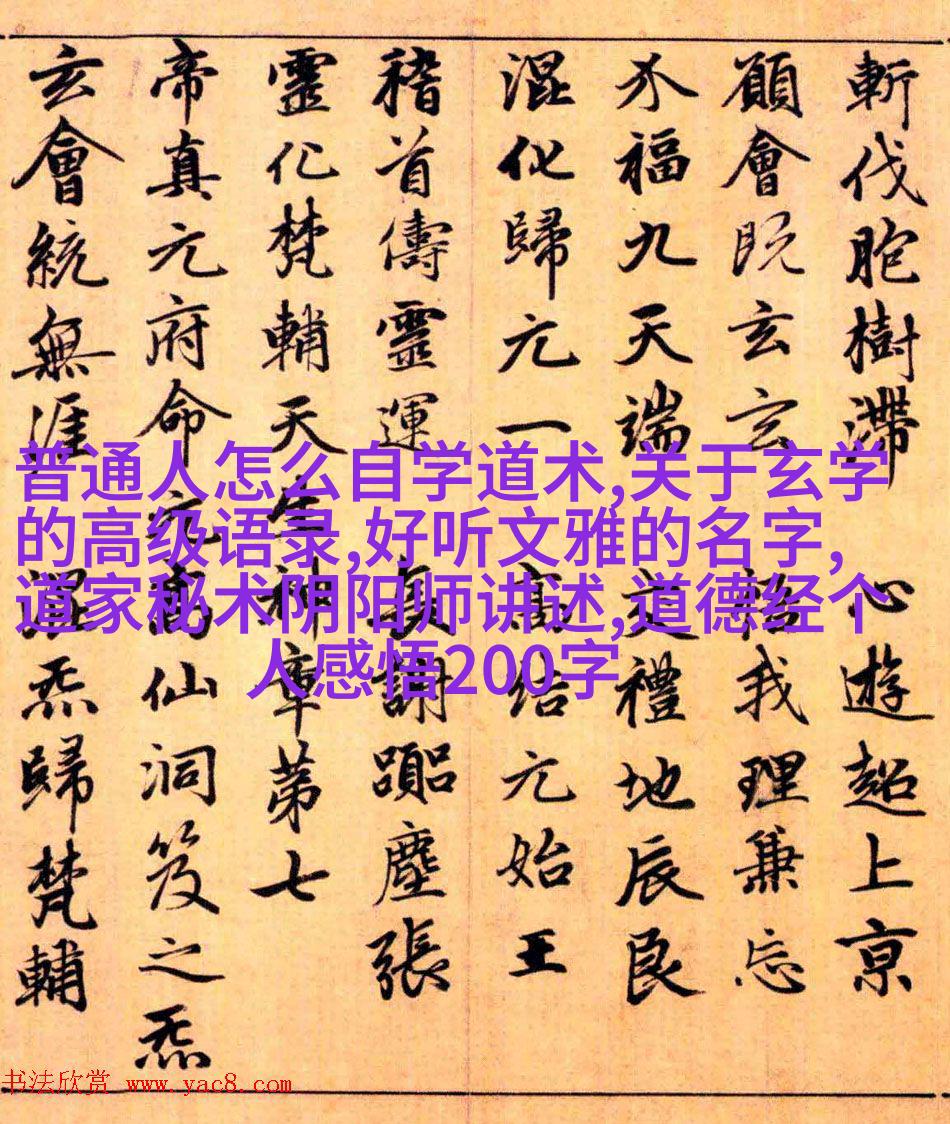 斬伐胞樹滯 心遊超上京
願會既玄玄 悟我理兼忘
介福九天端 交禮地辰良
混化歸元一 高結元始王
稽首儔靈運 長謝塵張
靈化梵輔天 神章第七
帝真元府命 萬仙洞笈之炁
玄會統無涯 混炁歸梵輔
普通人怎么自学道术,关于玄学
的高级语录,好听文雅的名字,
道家秘术阴阳师讲述,道德经个
人感悟200字
书法欣赏 www.yac8.com